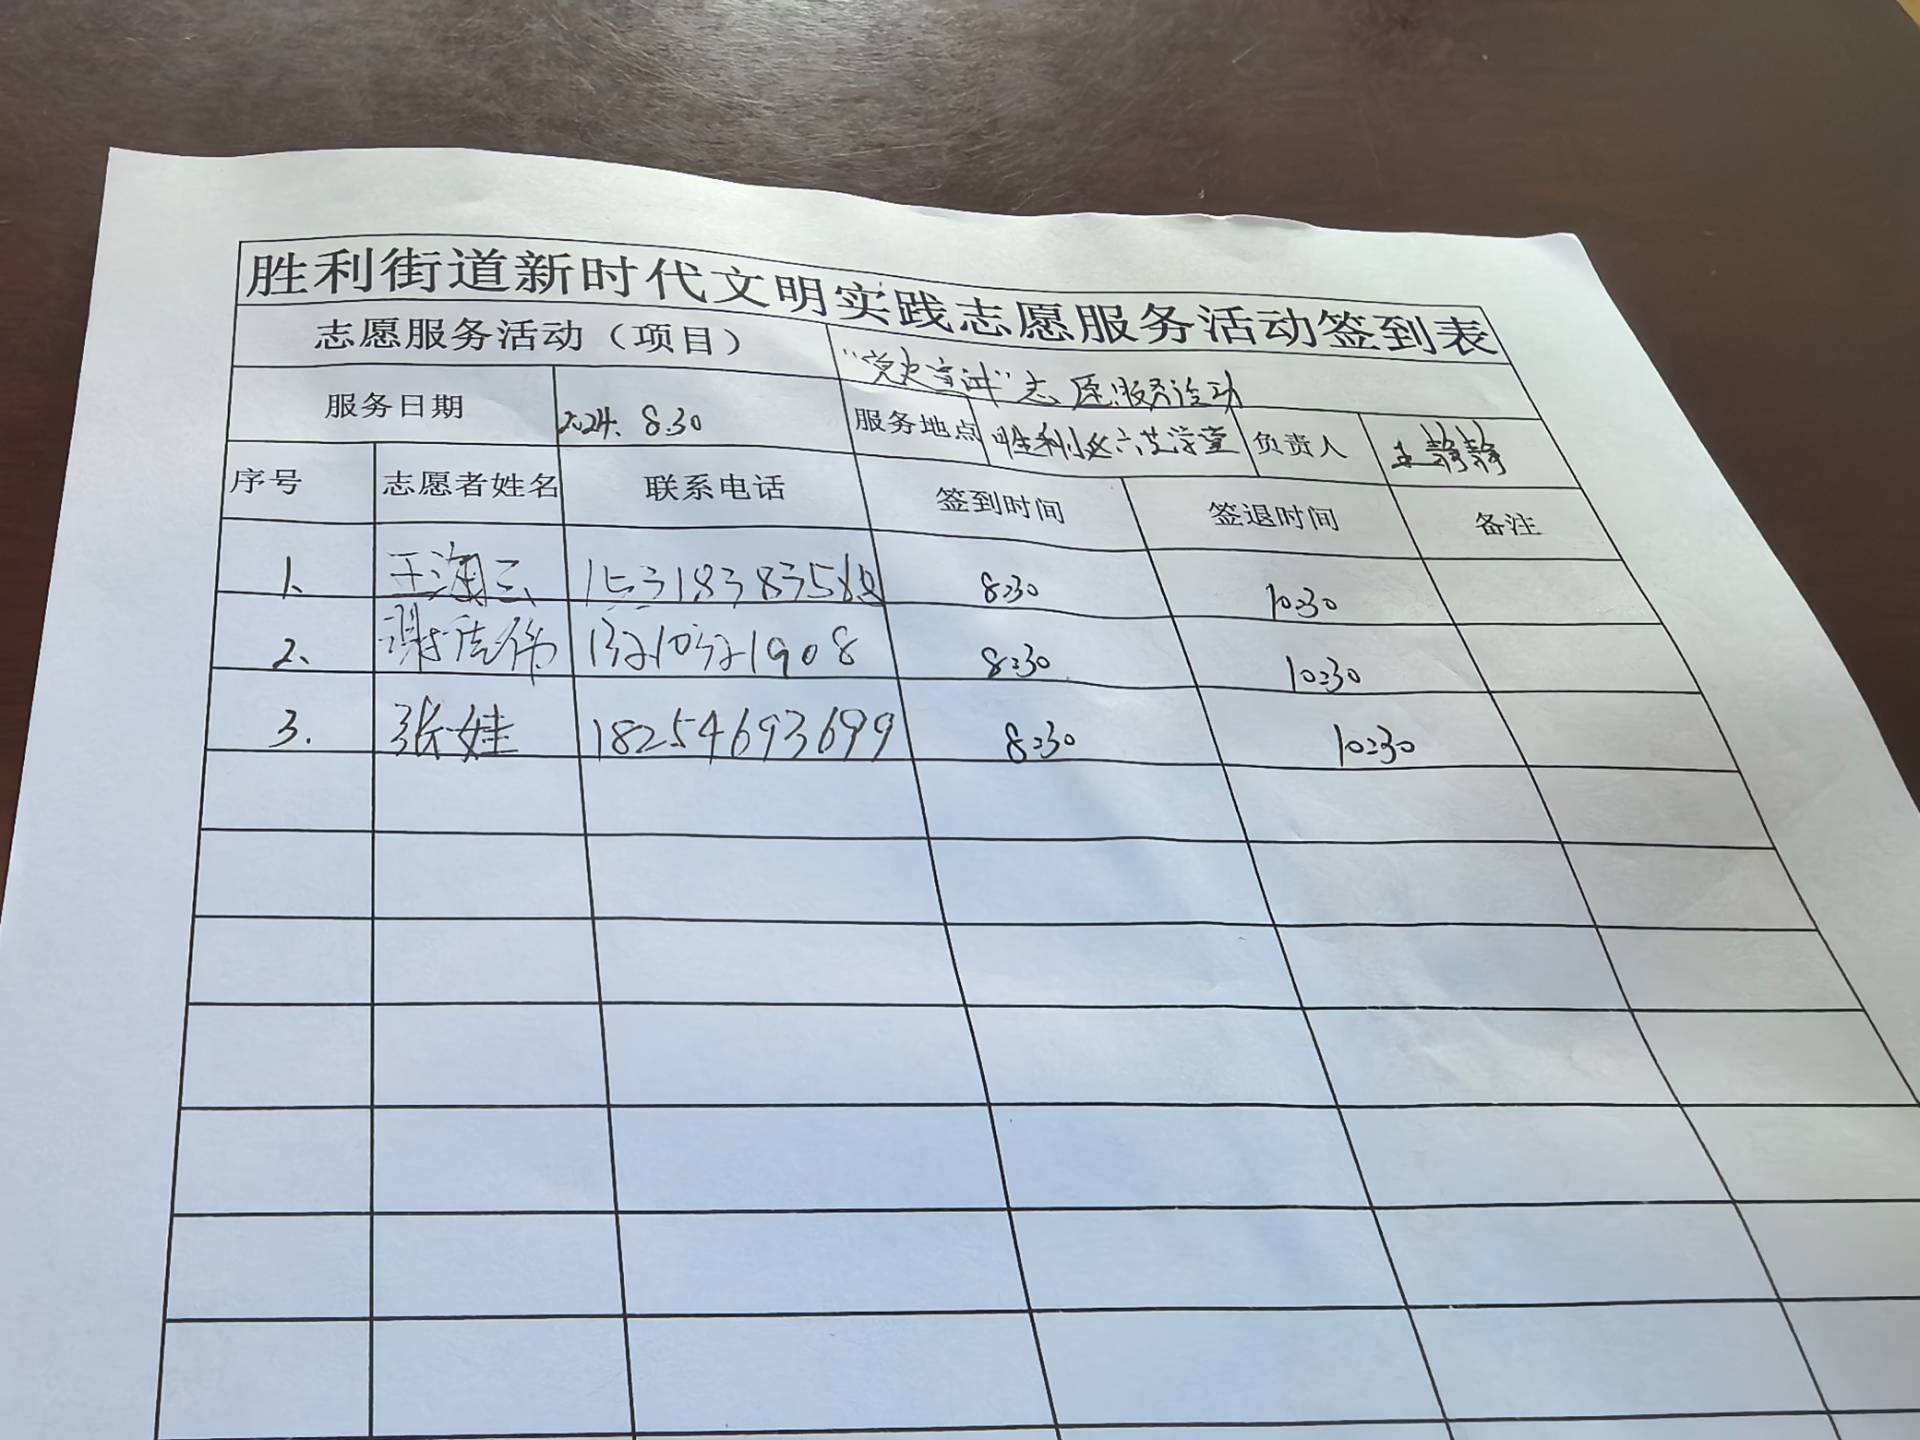 胜利街道新时代文明实践志愿服务活动签到表
志愿服务活动（项目） “党史宣讲”志愿服务活动
服务日期 2024. 8.30 服务地点 胜利小区六艺学堂 负责人 王静静
序号 志愿者姓名 联系电话 签到时间 签退时间 备注
1、 王海 8:30 10:30
2、 谢 8:30 10:30
3. 张娃 18254693699 8:30 10:30